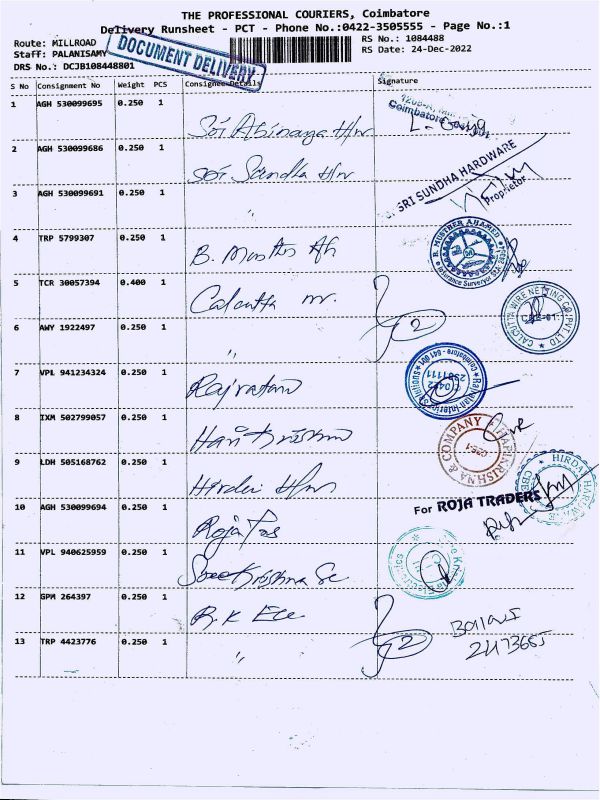 THE PROFESSIONAL COURIERS, Coimbatore
Delivery Runsheet - PCT - Phone No.:0422-3505555 - Page No.:1
Route: MILLROAD
RS No.: 1084488
Staff: PALANISAMY
RS Date: 24-Dec-2022
DRS No.: DCJB108448801
DOCUMENT DELIVERY
S No Consignment No Weight PCS Consignee Details Signature
1 AGH 530099695 0.250 1 Sri Abinaya H/w
Coimbatore
2 AGH 530099686 0.250 1 Sri Sundha H/w
SRI SUNDHA HARDWARE
Proprietor
3 AGH 530099691 0.250 1 "
4 TRP 5799307 0.250 1 B. Musther Ah
B. MUSTHER AHAMED
Insurance Surveyor
5 TCR 30057394 0.400 1 Calcutta
CALCUTTA WIRE NETTING CO. PVT. LTD
6 AWY 1922497 0.250 1 "
2
7 VPL 941234324 0.250 1 Rajratan
Rajratan Interio
Coimbatore - 641 001
0422
2381111
8 IXM 502799057 0.250 1 Hari Krishna
HARIKRISHNA & COMPANY
CBE-1
9 LDH 505168762 0.250 1 Hirdai H/w
HIRDAI HARDWARE
CBE
10 AGH 530099694 0.250 1 Roja Trs
For ROJA TRADERS
11 VPL 940625959 0.250 1 Sree Krishna Ee
12 GPM 264397 0.250 1 R.K Ele
13 TRP 4423776 0.250 1 "
2